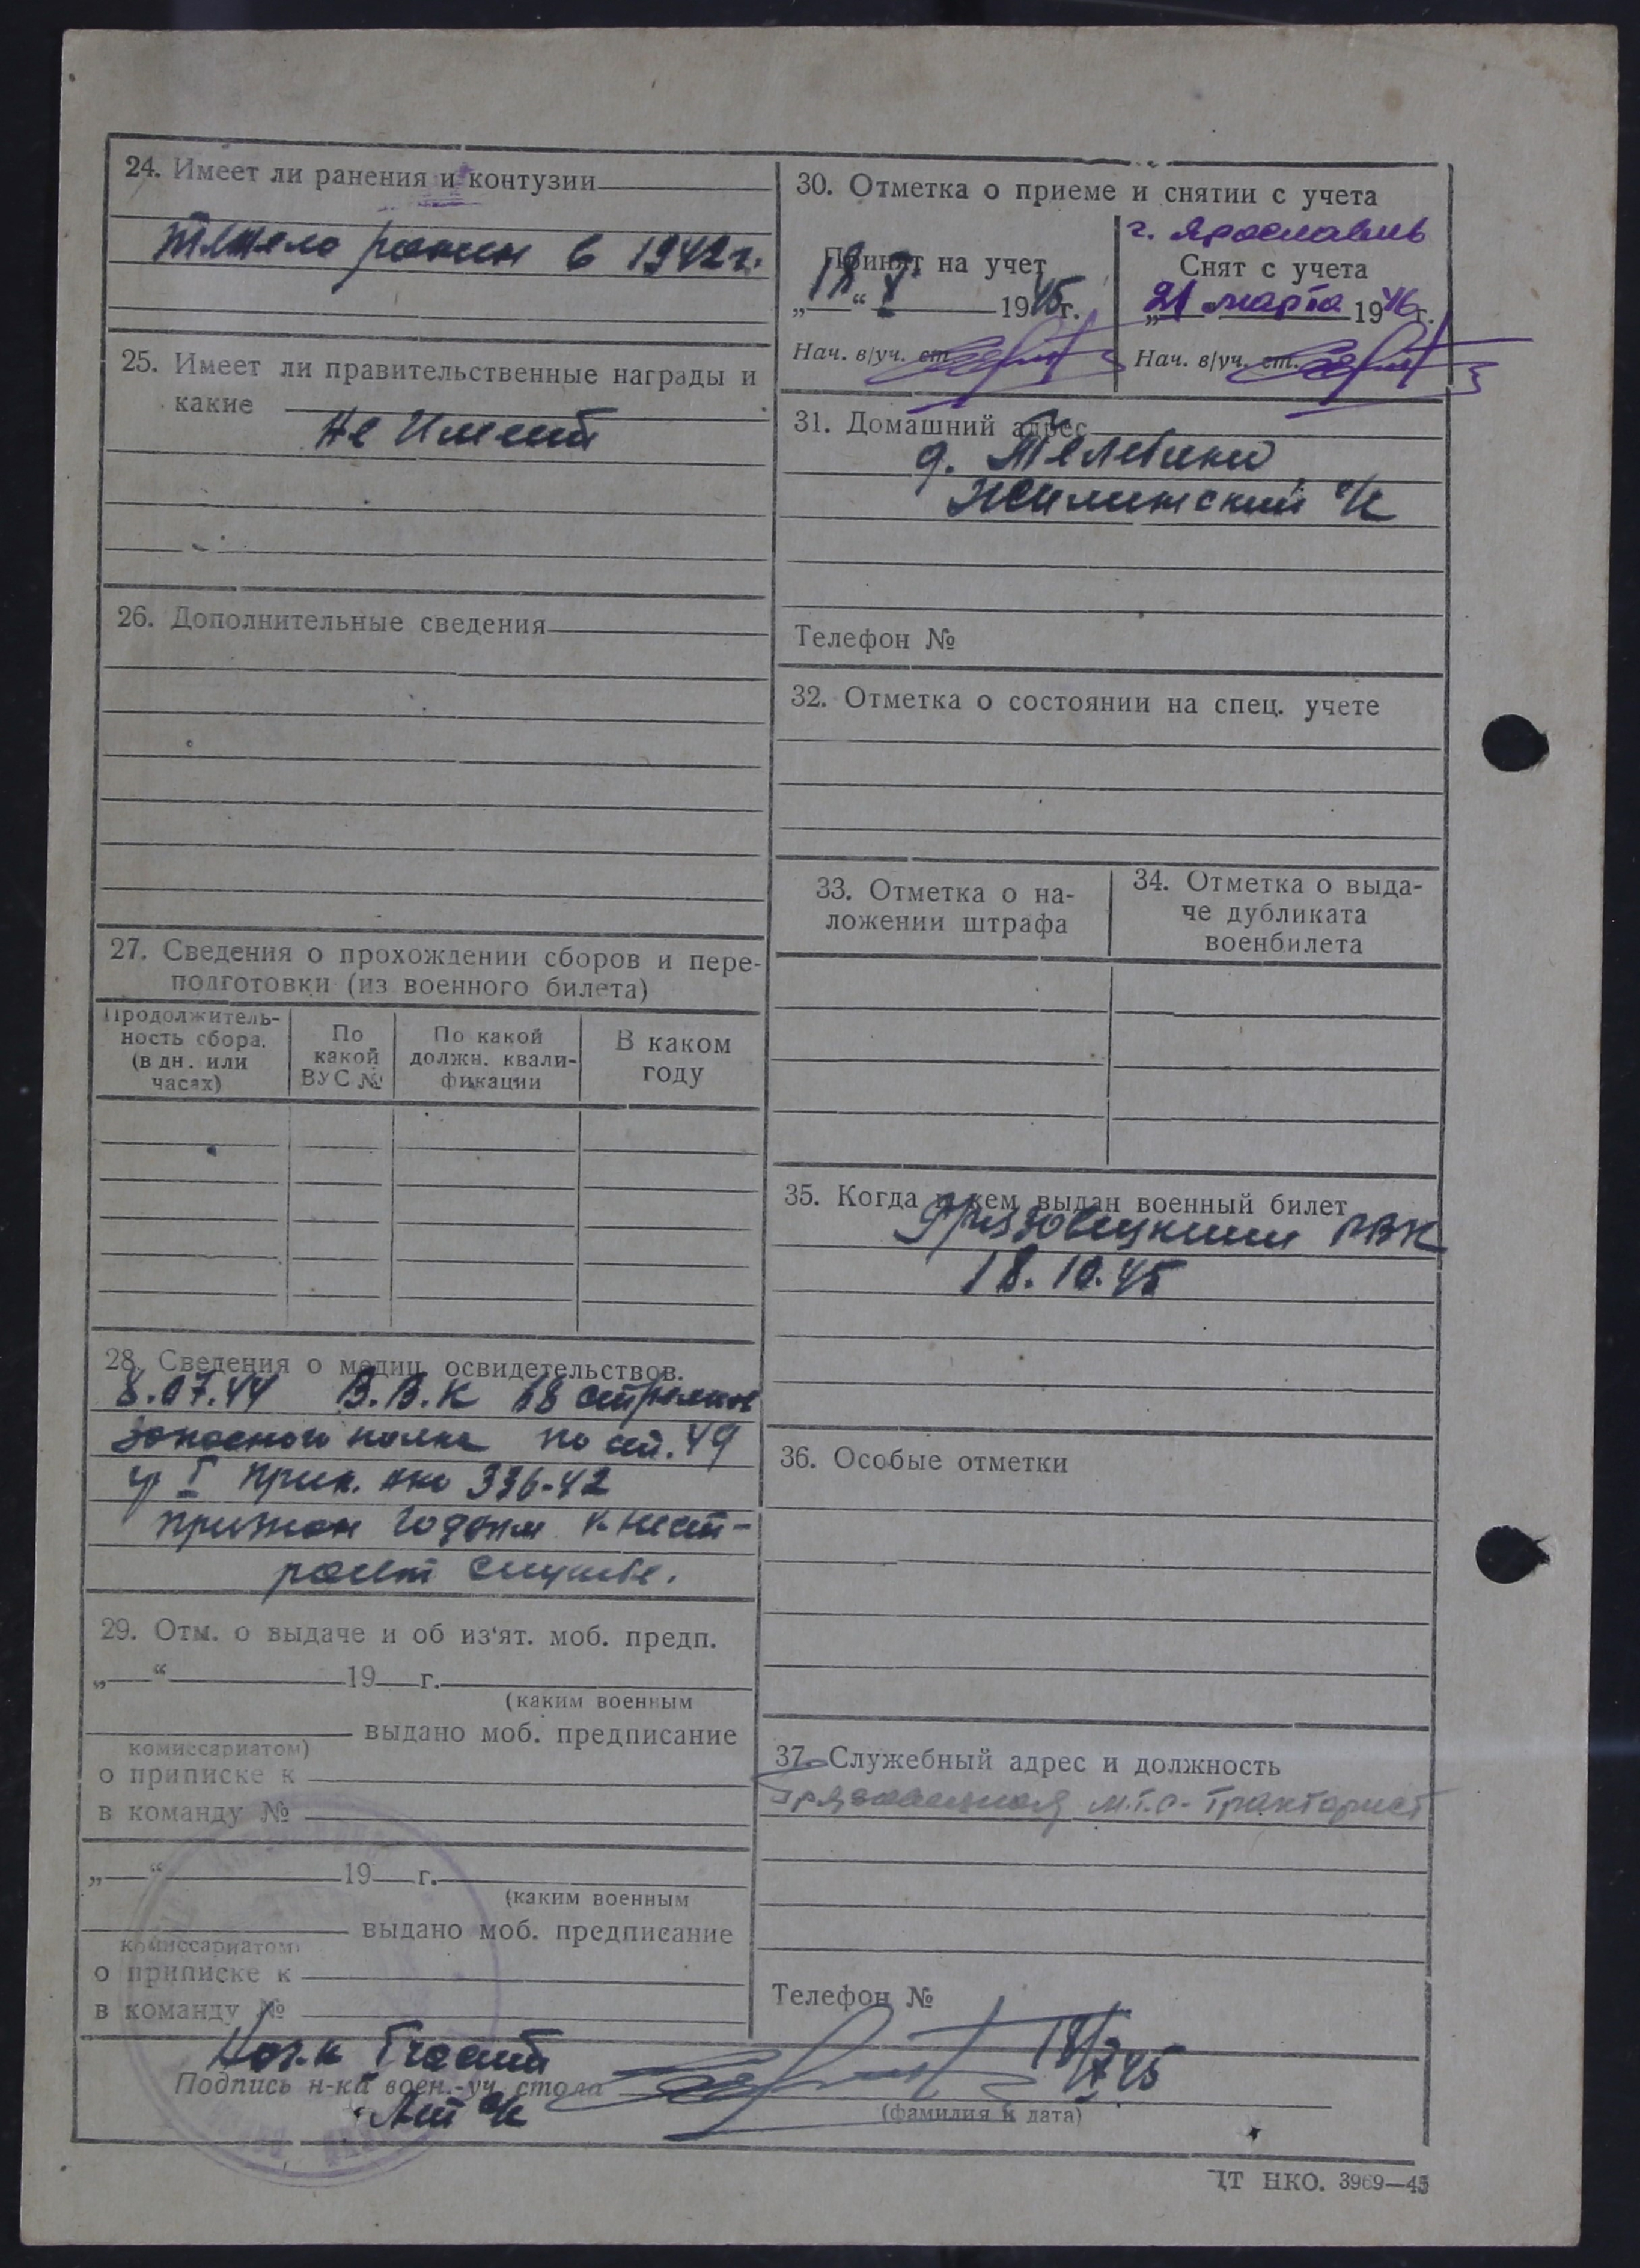 24. Имеет ли ранения и контузии
тяжело ранен в 1942 г.
25. Имеет ли правительственные награды и
какие
не имеет
26. Дополнительные сведения
27. Сведения о прохождении сборов и пере-
подготовки (из военного билета)
Продолжитель-
ность сбора.
(в дн. или
часах)
По
какой
ВУС №
По какой
должн. квали-
фикации
В каком
году
28. Сведения о медиц. освидетельствов.
8.07.44 В.В.К 18 стрелков
запасного полка по ст. 49
гр I прик. нко 336-42
признан годным к нест-
роевт службе.
29. Отм. о выдаче и об из'ят. моб. предп.
„—“ 19 г.
(каким военным
выдано моб. предписание
комиссариатом)
о приписке к
в команду №
„—“ 19 г.
(каким военным
выдано моб. предписание
комиссариатом)
о приписке к
в команду №
30. Отметка о приеме и снятии с учета
Принят на учет
„18“ X 1945 г.
Нач. в/уч. ст.
г. Ярославль
Снят с учета
„21 марта 1946 г.
Нач. в/уч. ст.
31. Домашний адрес
д. Телебино
Жилинский с/с
Телефон №
32. Отметка о состоянии на спец. учете
33. Отметка о на-
ложении штрафа
34. Отметка о выда-
че дубликата
военбилета
35. Когда и кем выдан военный билет
Грязовецким РВК
18.10.45
36. Особые отметки
37. Служебный адрес и должность
Грязовецкая М.Т.С - тракторист
Телефон №
Нач. 1 части
Подпись н-ка воен.-уч. стола
18/X 45
(фамилия и дата)
ЦТ НКО. 3969—45